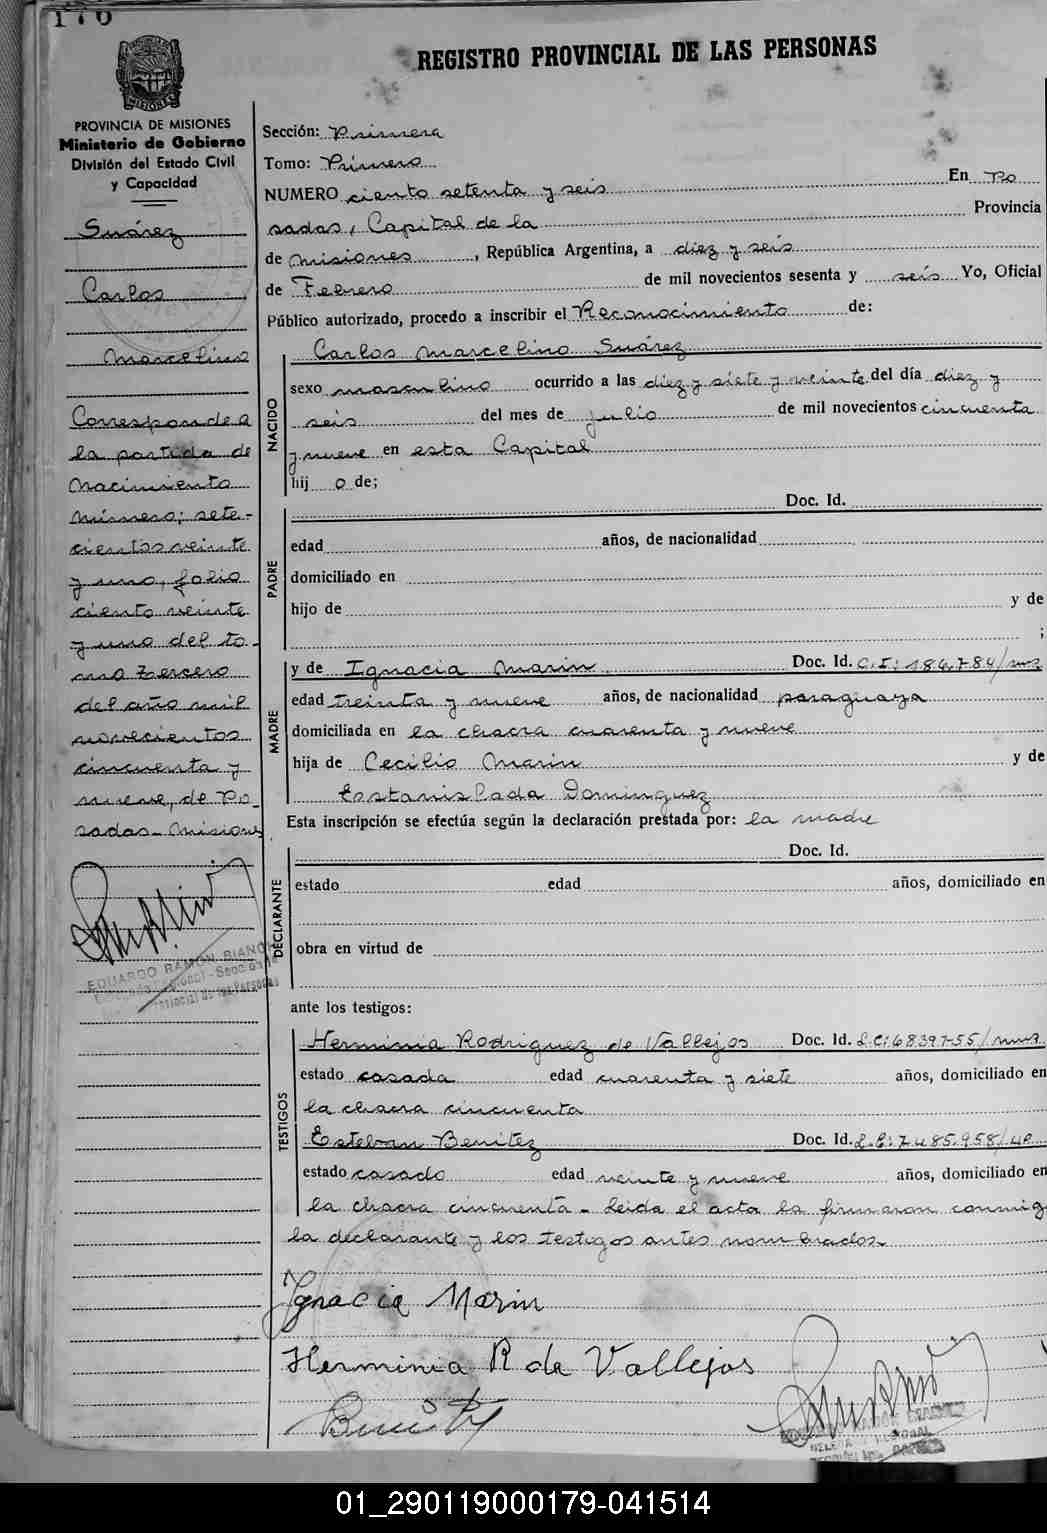 176
REGISTRO PROVINCIAL DE LAS PERSONAS
PROVINCIA DE MISIONES
Ministerio de Gobierno
División del Estado Civil
y Capacidad
Suárez
Carlos
Marcelino
Corresponde a
la partida de
Nacimiento
número; sete-
cientos veinte
y uno, folio
ciento veinte
y uno del to-
mo tercero
del año mil
novecientos
cincuenta y
nueve, de Po-
sadas-Misiones
EDUARDO RAMÓN BIANCHI
Sección: Primera
Tomo: Primero
NUMERO ciento setenta y seis En Po
sadas, Capital de la Provincia
de Misiones, República Argentina, a diez y seis
de Febrero de mil novecientos sesenta y seis Yo, Oficial
Público autorizado, procedo a inscribir el Reconocimiento de:
NACIDO
Carlos Marcelino Suárez
sexo masculino ocurrido a las diez y siete y veinte del día diez y
seis del mes de julio de mil novecientos cincuenta
y nueve en esta Capital
hij o de;
PADRE
Doc. Id.
edad años, de nacionalidad
domiciliado en
hijo de y de
;
MADRE
y de Ignacia Marin Doc. Id. C.I: 186,784/mns
edad treinta y nueve años, de nacionalidad paraguaya
domiciliada en la chacra cuarenta y nueve
hija de Cecilio Marin y de
Estanislada Dominguez
Esta inscripción se efectúa según la declaración prestada por: la madre
DECLARANTE
Doc. Id.
estado edad años, domiciliado en
obra en virtud de
ante los testigos:
TESTIGOS
Herminia Rodriguez de Vallejos Doc. Id. L.C: 6839755/mns
estado casada edad cuarenta y siete años, domiciliado en
la chacra cincuenta
Esteban Benítez Doc. Id. L.E: 7.485.958/
estado casado edad veinte y nueve años, domiciliado en
la chacra cincuenta - Leida el acta la firmaron conmig
la declarante y los testigos antes nombrados.
Ignacia Marin
Herminia R de Vallejos
01_290119000179-041514